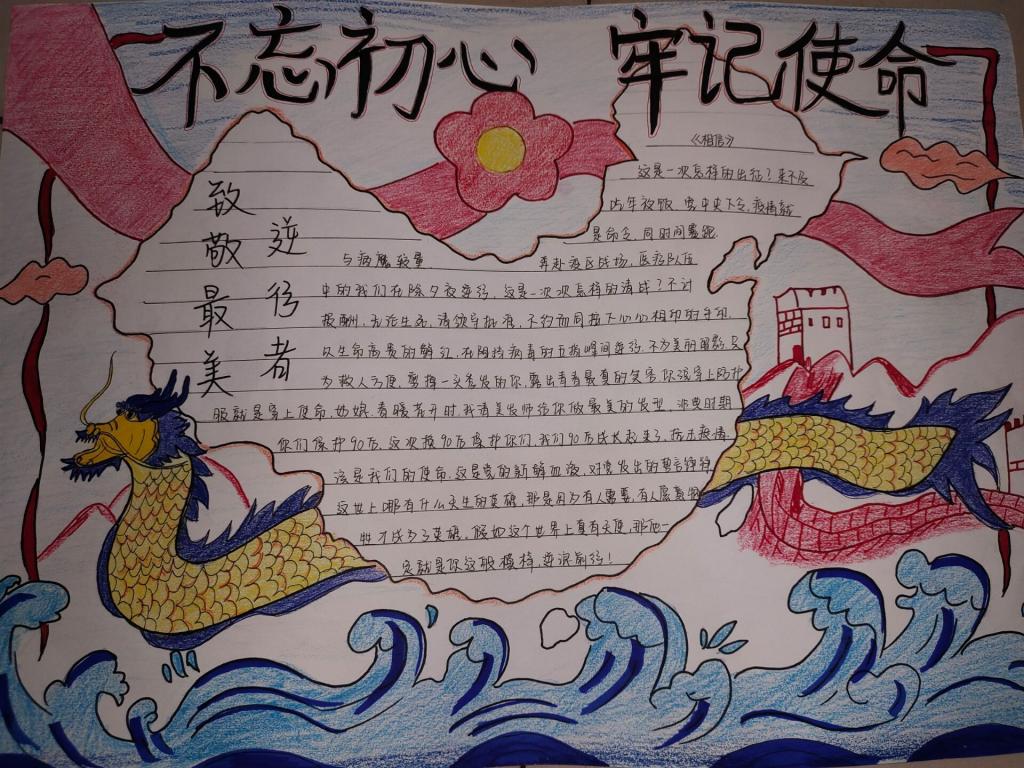 不忘初心 牢记使命
致敬最美
逆行者
《相信》
这是一次怎样的出征？来不及
吃年夜饭，党中央下令，疫情就
是命令，同时间赛跑，
与病魔较量，再赴疫区战场，医疗队伍
中的我们在除夕夜逆行，这是一次次怎样的请战？不计
报酬，无论生死，请领导批准，不约而同按下心心相印的手印，
以生命高贵的鲜红，在阻挡病毒的五指峰间逆行，不为美丽留影，只
为救人方便，剪掉一头秀发的你，露出青春最真的笑容，你没穿上防护
服就是穿上使命，姑娘，春暖花开时，我请美发师给你做最美的发型，非典时期
你们保护90后，这次换90后守护你们，我们90后成长起来了，抗击疫情
该是我们的使命，这是党的新鲜血液，对党发出的莫言铮铮
这世上哪有什么天生的英雄，那是因为有人需要，有人愿意牺
牲才成为了英雄，假如这个世界上真有天使，那他一
定就是你这般模样，逆浪前行！